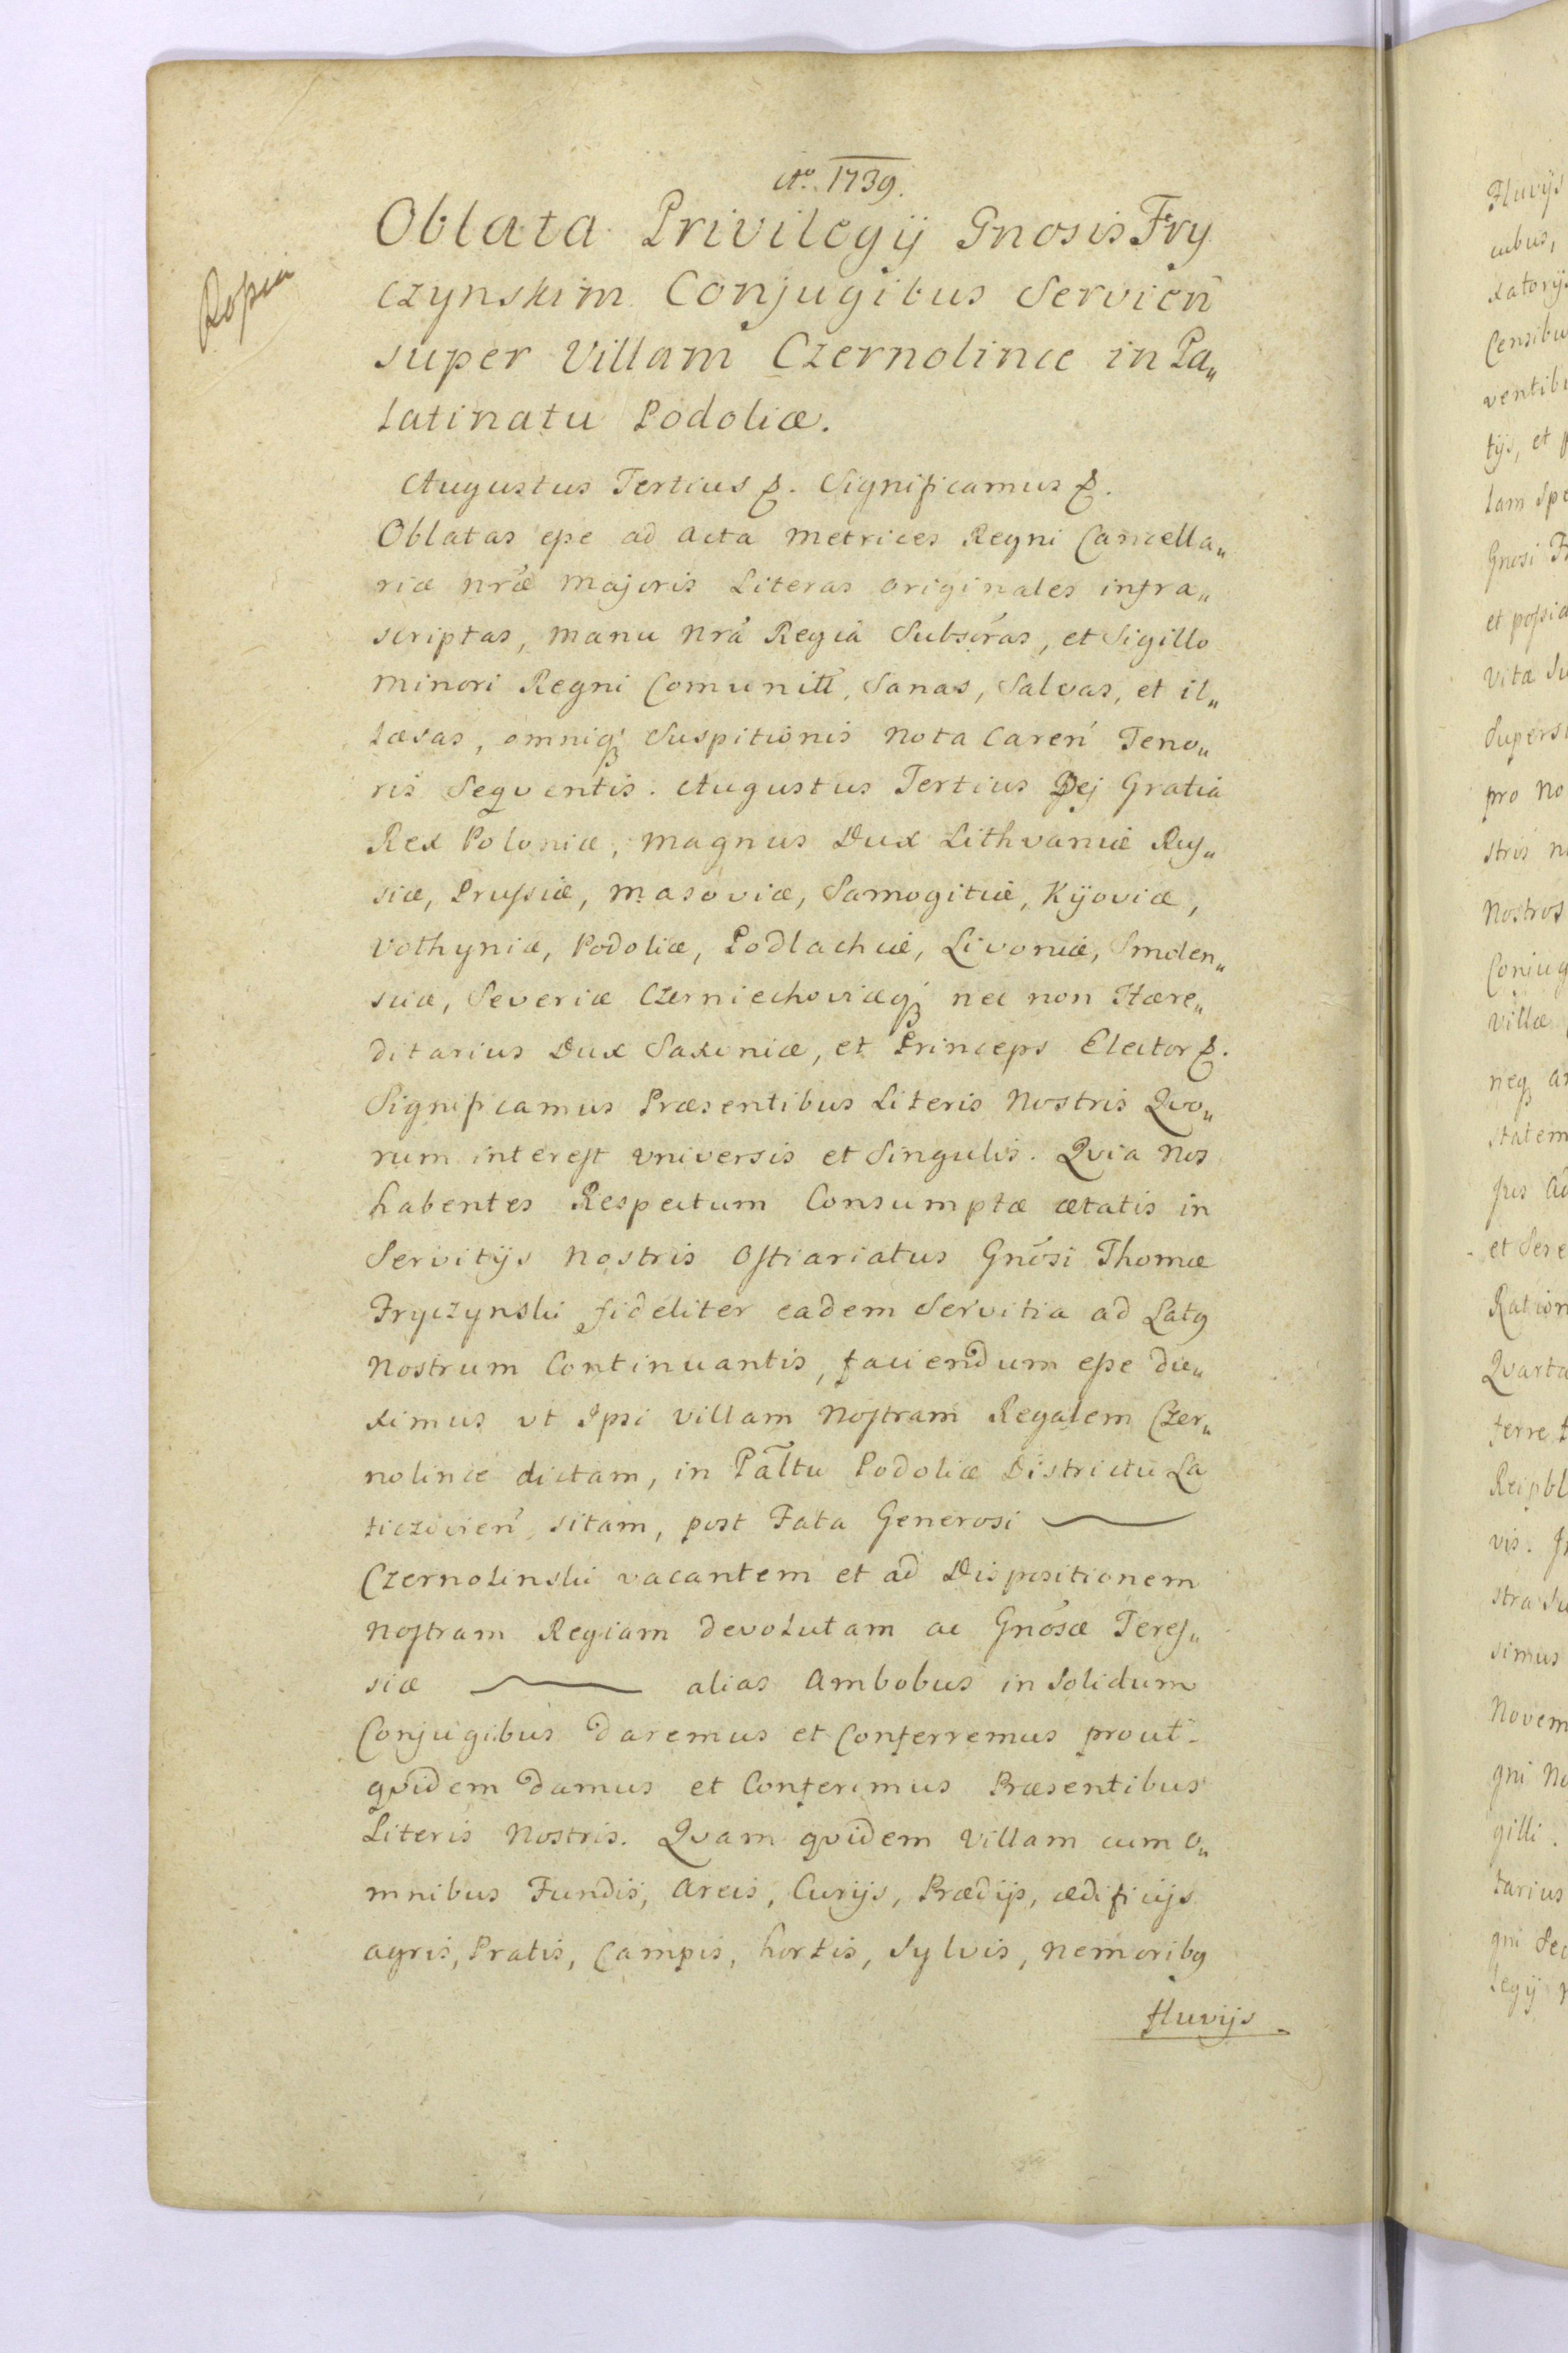 Ao. 1739.
Oblata Privilegij Gnosis Fry
czynskim Conjugibus Servień
super Villam Czernolince in Pa„
latinatu Podoliæ.
Kopia
Augustus Tertius &. Significamus &.
Oblatas eſse ad acta Metrices Regni Cancella„
riæ nr̃æ Majoris Literas originales infra„
scriptas, manu nr̃a Regia Subscr̃as, et Sigillo
minori Regni Comunitt, Sanas, Salvas, et il„
læsas, omniq; Suspitionis nota Careń Teno„
ris Seqventis. Augustus Tertius Dej Gratia
Rex Poloniæ, Magnus Dux Lithvaniæ Ruſ„
siæ, Pruſsiæ, Masoviæ, Samogitiæ, Kijoviæ,
Volhyniæ, Podoliæ, Podlachiæ, Livoniæ, Smolen„
sciæ, Severiæ Czerniechoviæq; nec non Hære„
ditarius Dux Saxoniæ, et Princeps Elector &.
Significamus Præsentibus Literis Nostris Qvo„
rum intereſt Vniversis et Singulis. Qvia Nos
habentes Respectum Consumptæ ætatis in
Servitijs Nostris Oſtiariatus Gnõsi Thomæ
Fryczynski fideliter eadem Servitia ad Latq
Nostrum Continuantis, faciendum eſse du„
ximus vt Ipsi Villam Noſtram Regalem Czer„
nolince dictam, in Pal̃tu Podoliæ Districtu La
ticzovień sitam, post Fata Generosi
Czernolinski vacantem et ad Dispositionem
Noſtram Regiam devolutam ac Gnõsæ Tereſ„
siæ alias Ambobus in Solidum
Conjugibus daremus et Conferremus prout
qvidem damus et Conferimus Præsentibus
Literis Nostris. Qvam qvidem Villam cum o„
mnibus Fundis, Areis, Curijs, Prædijs, ædificijs
agris, Pratis, Campis, hortis, Sylvis, Nemoribq
fluvijs